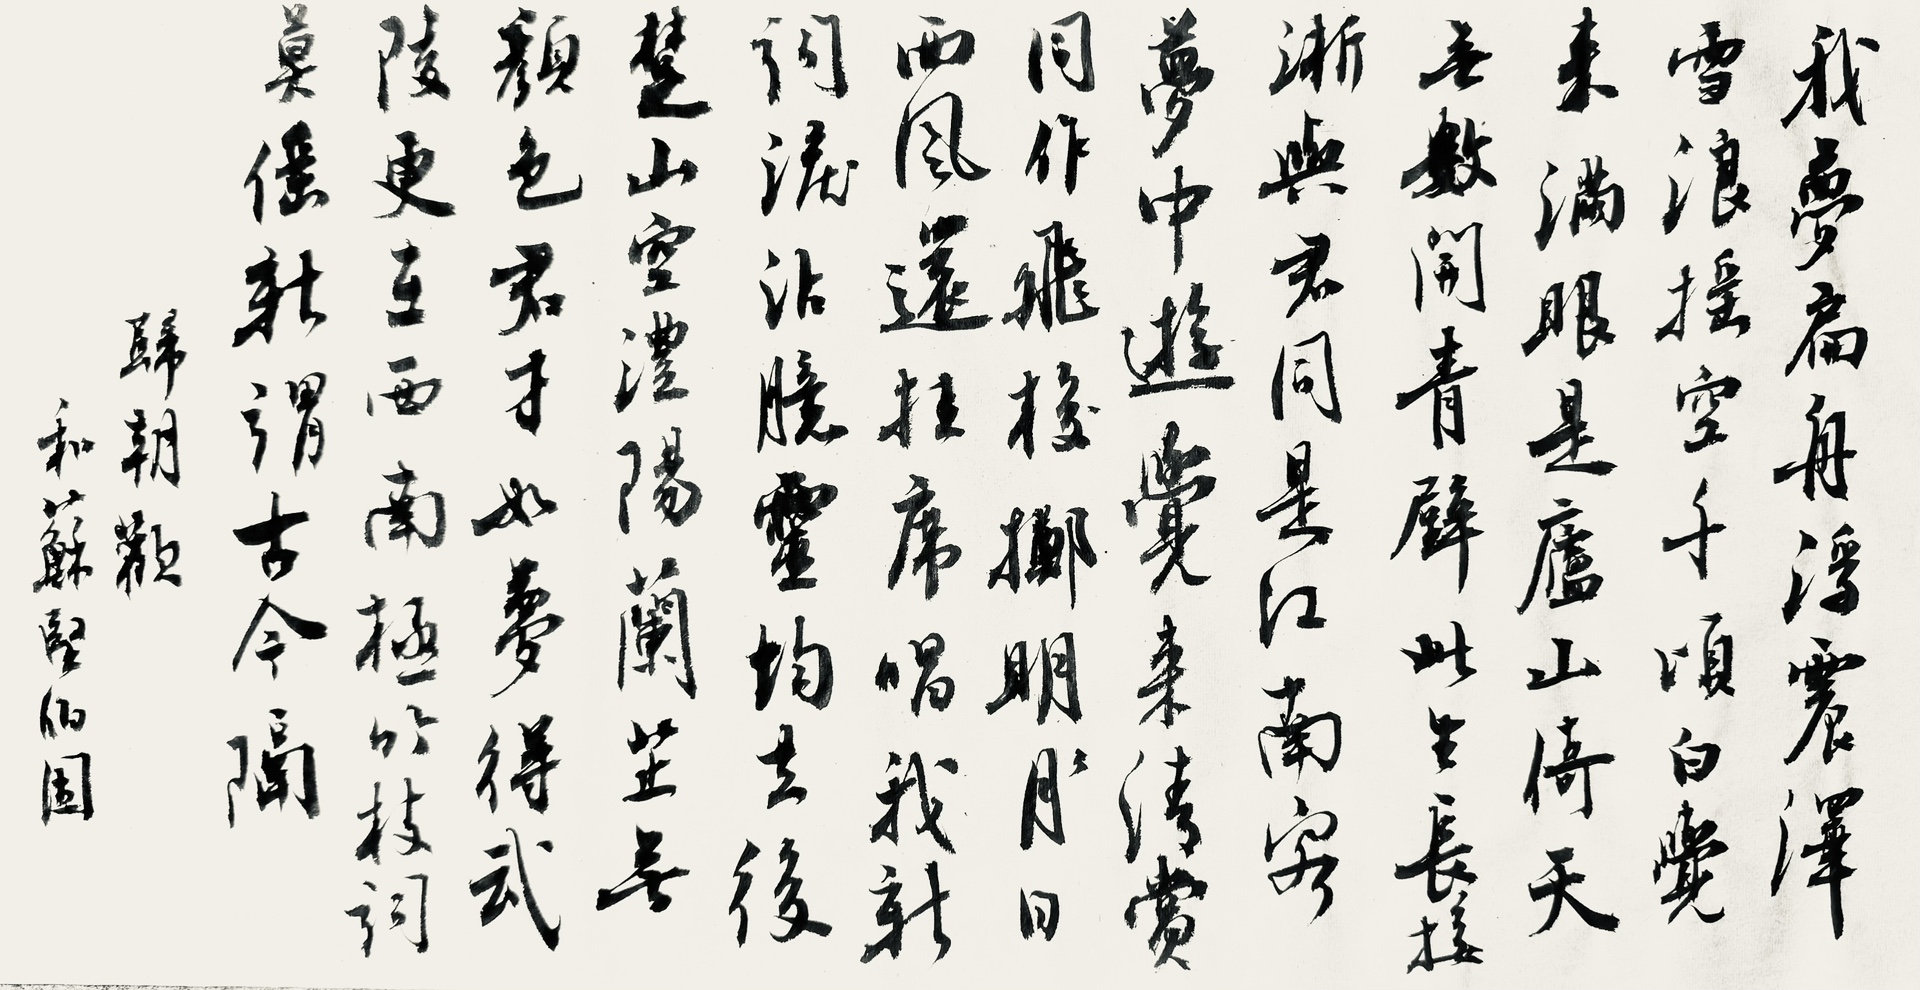 我夢扁舟浮震澤
雪浪摇空千頃白覺
来滿眼是廬山倚天
無數開青壁此生長接
淅與君同是江南客
夢中遊覺来清賞
同作飛梭擲明月日
西風還挂席唱我新
詞淚沾臆靈均去後
楚山空澧陽蘭芷無
顏色君才如夢得武
陵更在西南極竹枝詞
莫傜新謂古今隔
歸朝歡
和蘇堅伯固